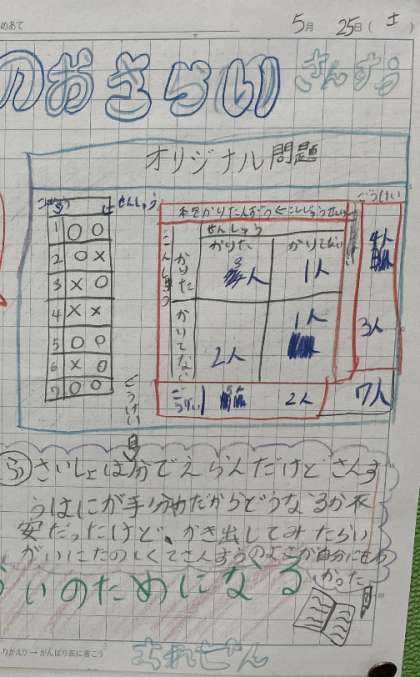 めあて
5月 25日(土)
のおさらい さんすう
オリジナル問題
せんしゅう
ごうけい
本をかりたんず
せんしゅう
かりた かりてない
こんしゅう
かりた 人 1人 4人
かりてない 2人 1人 3人
ごうけい 2人 7人
1 ○ ○
2 ○ ×
3 × ○
4 × ×
5 ○ ○
6 × ○
7 ○ ○
ごうけい
さいしょは分でえらんだけどさんす
うはにが手 だからどうなるか不
安だったけど、かき出してみたらい
がいにたのしくてさんすうのよこが自分に
かった
いのためになる
りかえり→がんばり表に書こう
ちれぜん